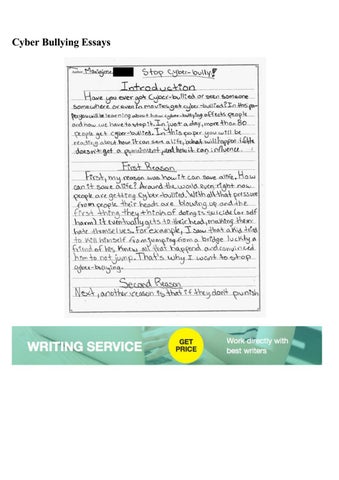 Cyber Bullying Essays
Author: Mariajose
Stop Cyber-bully!
Introduction
Have you ever got Cyber-bullied or seen someone
somewhere or even in movies get cyber-bullied? In this pa-
per you will be learning about how cyber-bullying affects people
and how we have to stop it. In just a day, more than 80
people get cyber-bullied. In this paper you will be
reading about how it can save a life, what will happen if the
doesn't get a punishment, and how it can influence.
First Reason
First, my reason was how it can save a life. How
can it save a life? Around the world even right now
people are getting Cyber-bullied. With all that pressure
from people their heads are blowing up and the
first thing they think of doing is suicide (or self
harm) it eventually gets to their head, making them
hate themselves. For example, I saw that a kid tried
to kill himself from jumping from a bridge luckily a
friend of his knew all that happend and convinced
him to not jump. That's why I want to stop
cyber-bullying.
Second Reason
Next, another reason is that if they don't punish
WRITING SERVICE
GET
PRICE
Work directly with
best writers